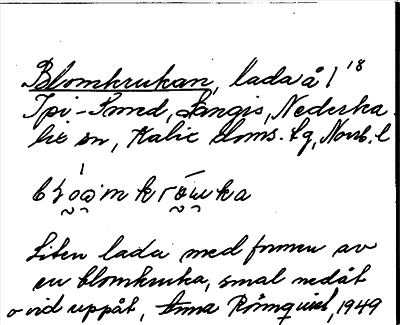 Blomkrukan, lada å 1 18
Ipi-Smed, Sangis, Nederka-
lix sn, Kalix doms. lg, Norrb. l
Liten lada med formen av
en blomkruka, smal nedåt
o vid uppåt, Anna Rönnquist, 1949